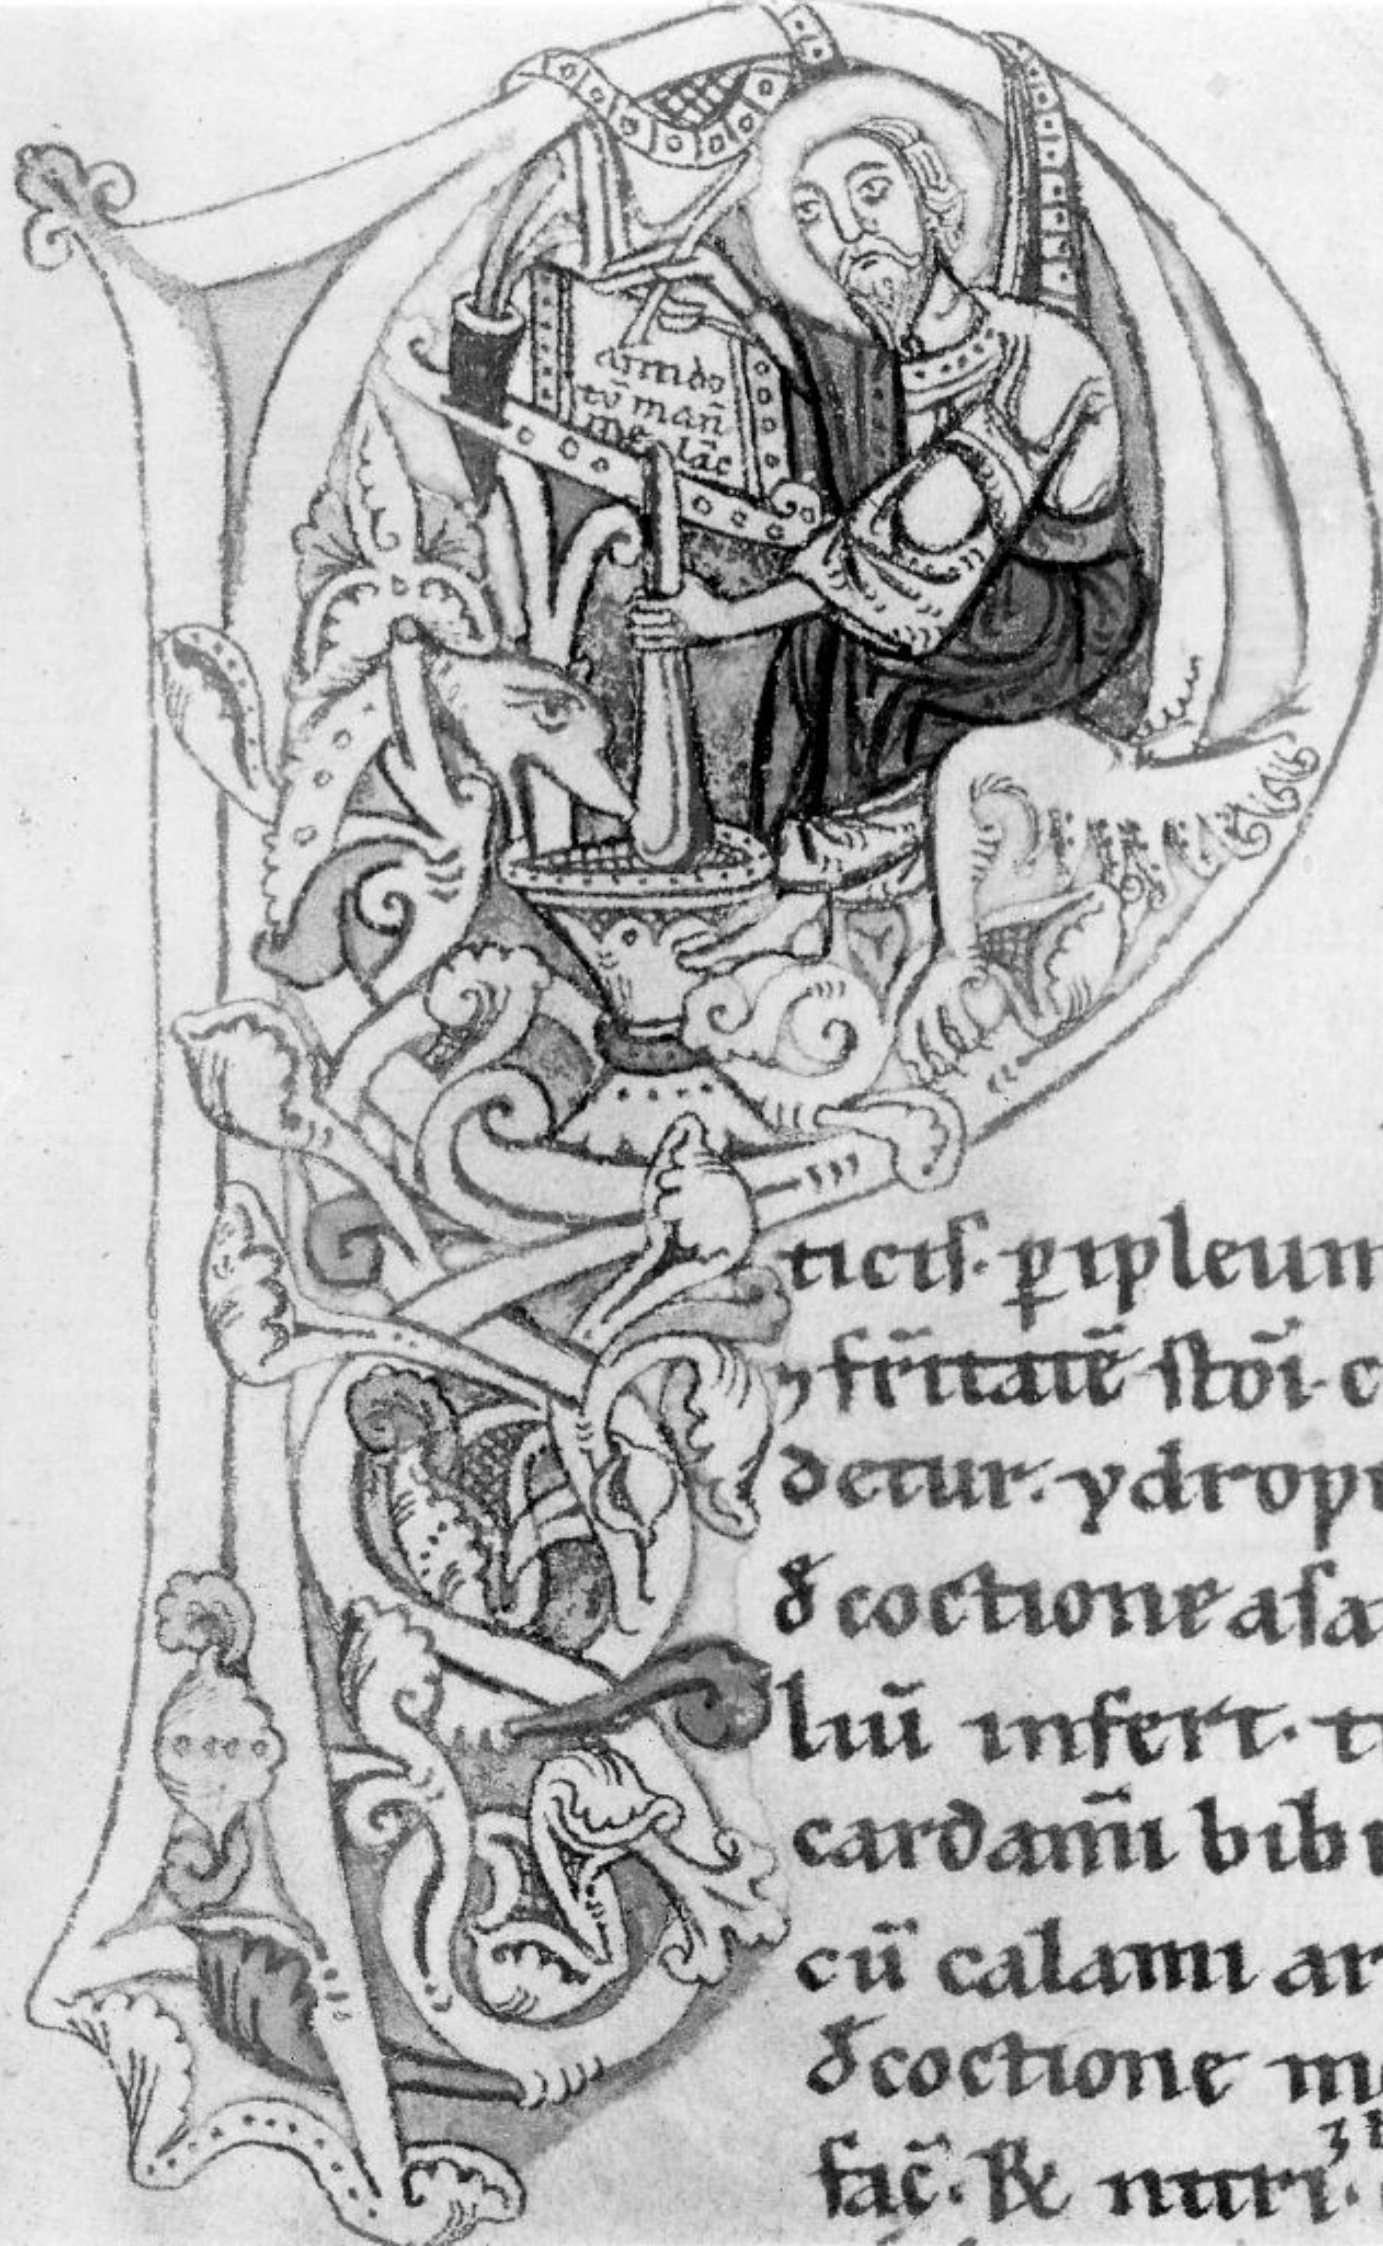 antido
tū man̄
me lāc
P
ticis. ꝑipleum
⁊ fr̄itatē stōi. c
detur. ydropi
đ coctione asa
liū infert. t
cardam̄i bib
cū calami ar
đcoctione m
fac̄. ℞ nitri.